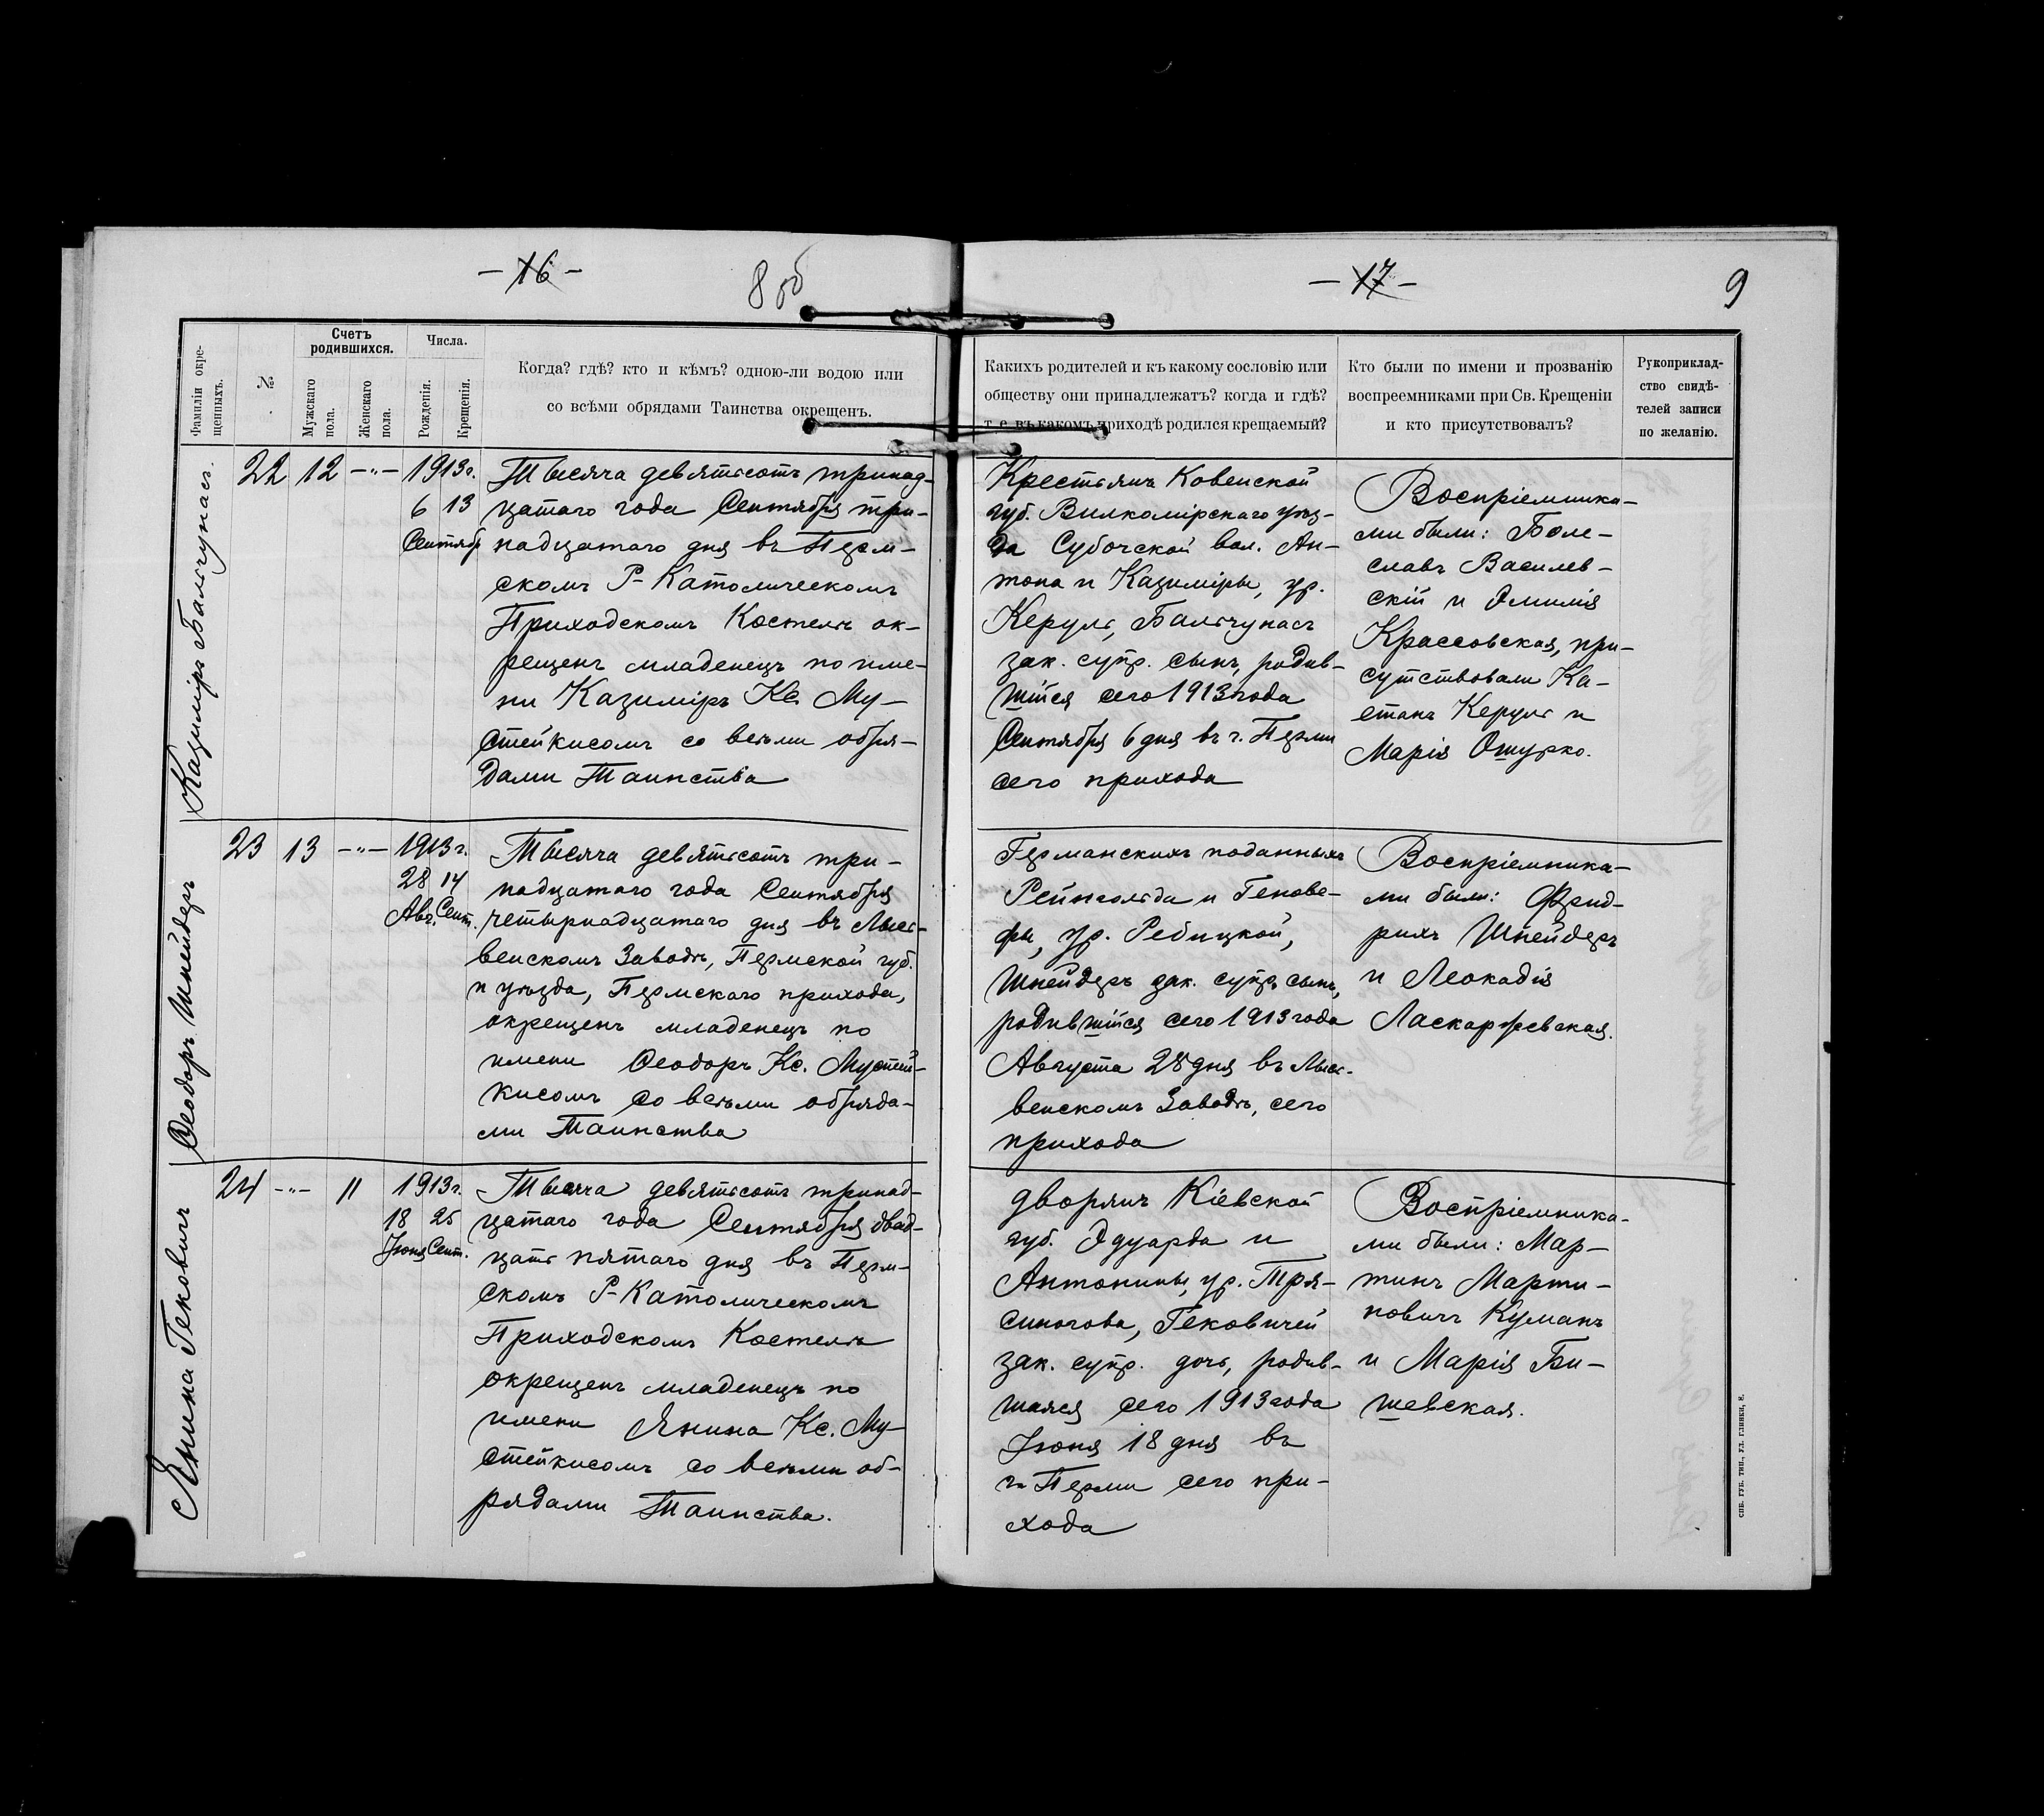 - 16 -
8 об
Фамиліи окре-
щенныхъ.
№
Счетъ
родившихся.
Мужскаго
пола.
Женскаго
пола.
Числа.
Рожденія.
Крещенія.
Когда? гдѣ? кто и кѣмъ? одною-ли водою или
со всѣми обрядами Таинства окрещенъ.
Казиміръ Бальчунасъ.
22 12 -"- 1913г.
6 13
Сентябр
Тысяча девятьсотъ тринад-
цатаго года Сентября три-
надцатаго дня въ Перм-
скомъ Р-Католическомъ
Приходскомъ Костелѣ ок-
рещенъ младенецъ по име-
ни Казиміръ Кс. Му-
стейкисомъ со всѣми обря-
дами Таинства
Ѳеодоръ Шнейдеръ
23 13 -"- 1913г.
28 14
Авг. Сент.
Тысяча девятьсотъ три-
надцатаго года Сентября
четырнадцатаго дня въ Лысь-
венскомъ Заводѣ, Пермской губ.
и уѣзда, Пермскаго прихода,
окрещенъ младенецъ по
имени Ѳеодоръ Кс. Мустей-
кисомъ со всѣми обряда-
ми Таинства
Янина Гековичъ
24 -"- 11 1913г.
18 25
Іюня Сент.
Тысяча девятьсотъ тринад-
цатаго года Сентября двад-
цать пятаго дня въ Перм-
скомъ Р-Католическомъ
Приходскомъ Костелѣ
окрещенъ младенецъ по
имени Янина Кс. Му-
стейкисомъ со всѣми об-
рядами Таинства.
- 17 -
9
Какихъ родителей и къ какому сословію или
обществу они принадлежатъ? когда и гдѣ?
т. е. въ какомъ приходѣ родился крещаемый?
Кто были по имени и прозванію
воспреемниками при Св. Крещеніи
и кто присутствовалъ?
Рукоприклад-
ство свидѣ-
телей записи
по желанію.
Крестьянъ Ковенской
губ. Вилкомірскаго уѣз-
да Субочской вол. Ан-
тона и Казиміры, ур.
Керуль, Бальчунасъ
зак. супр. сынъ, родив-
шійся сего 1913 года
Сентября 6 дня въ г. Перми
сего прихода
Воспріемника-
ми были: Боле-
славъ Василев-
скій и Эмилія
Крассовская, при-
сутствовали Ка-
етанъ Керуль и
Марія Ошурко.
Германскихъ поданныхъ
Рейнгольда и Генове-
фы, ур. Ребицкой,
Шнейдеръ зак. супр. сынъ,
родившійся сего 1913 года
Августа 28 дня въ Лысь-
венскомъ Заводѣ, сего
прихода
Воспріемника-
ми были: Фрид-
рихъ Шнейдеръ
и Леокадія
Ласкаржевская.
дворянъ Кіевской
губ. Эдуарда и
Антонины, ур. Тря-
синогова, Гековичей
зак. супр. дочь, родив-
шаяся сего 1913 года
Іюня 18 дня въ
г. Перми сего при-
хода
Воспріемника-
ми были: Мар-
тинъ Марти-
новичъ Куманъ
и Марія Би-
шевская.
СПБ. ГУБ. ТИП., УЛ. ГЛИНКИ, 8.